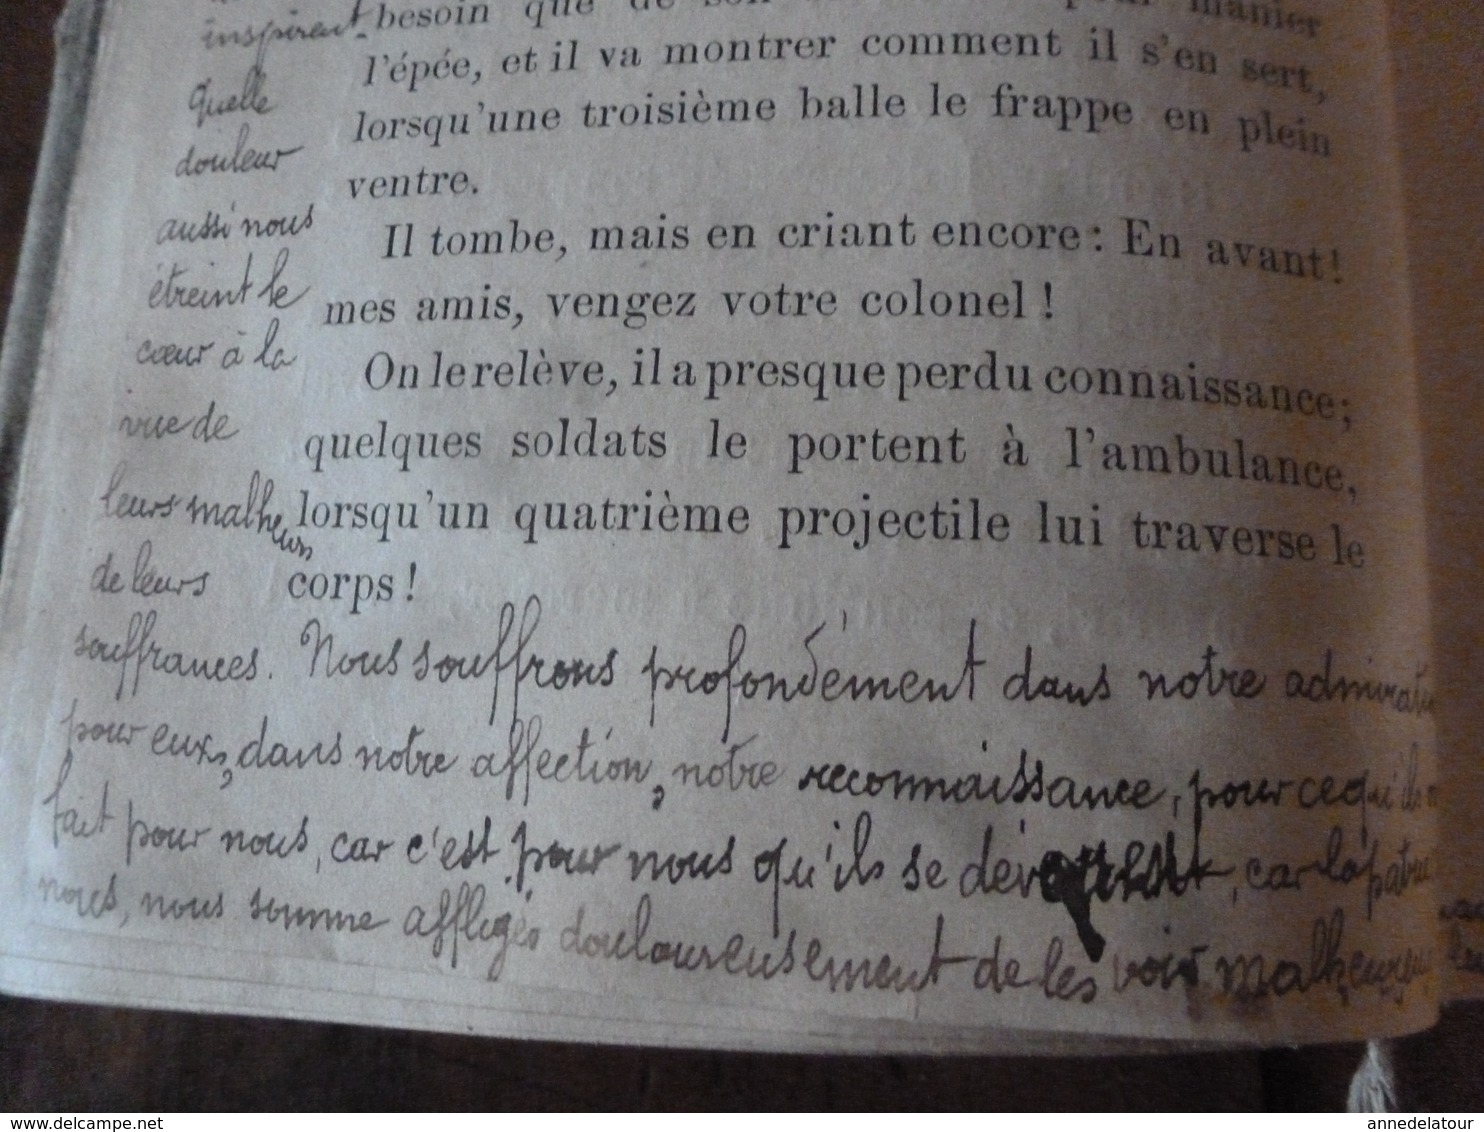 besoin que de son pour manier
l'épée, et il va montrer comment il s'en sert,
lorsqu'une troisième balle le frappe en plein
ventre.
Il tombe, mais en criant encore : En avant !
mes amis, vengez votre colonel !
On le relève, il a presque perdu connaissance ;
quelques soldats le portent à l'ambulance,
lorsqu'un quatrième projectile lui traverse le
corps !
inspirent.
Quelle
douleur
aussi nous
étreint le
cœur à la
vue de
leurs malheurs
de leurs
souffrances. Nous souffrons profondément dans notre
pour eux, dans notre affection, notre reconnaissance, pour ce qu'ils
fait pour nous, car c'est pour nous qu'ils se car la
nous, nous somme affligés douloureusement de les voir
annedelatour